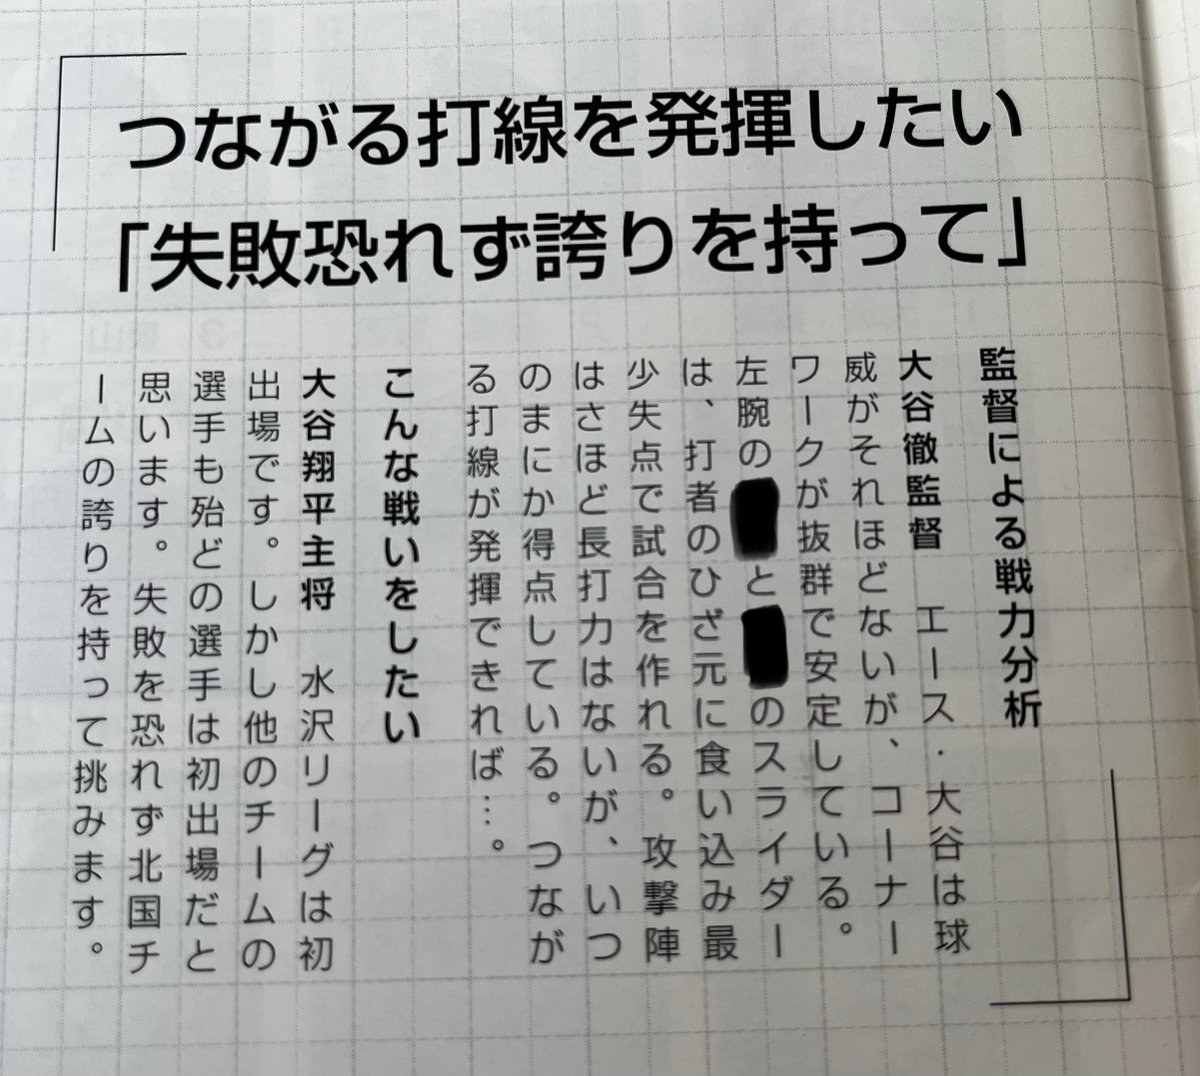 つながる打線を発揮したい
「失敗恐れず誇りを持って」
監督による戦力分析
大谷徹監督　エース・大谷は球
威がそれほどないが、コーナー
ワークが抜群で安定している。
左腕の と のスライダー
は、打者のひざ元に食い込み最
少失点で試合を作れる。攻撃陣
はさほど長打力はないが、いつ
のまにか得点している。つなが
る打線が発揮できれば…。
こんな戦いをしたい
大谷翔平主将　水沢リーグは初
出場です。しかし他のチームの
選手も殆どの選手は初出場だと
思います。失敗を恐れず北国チ
ームの誇りを持って挑みます。